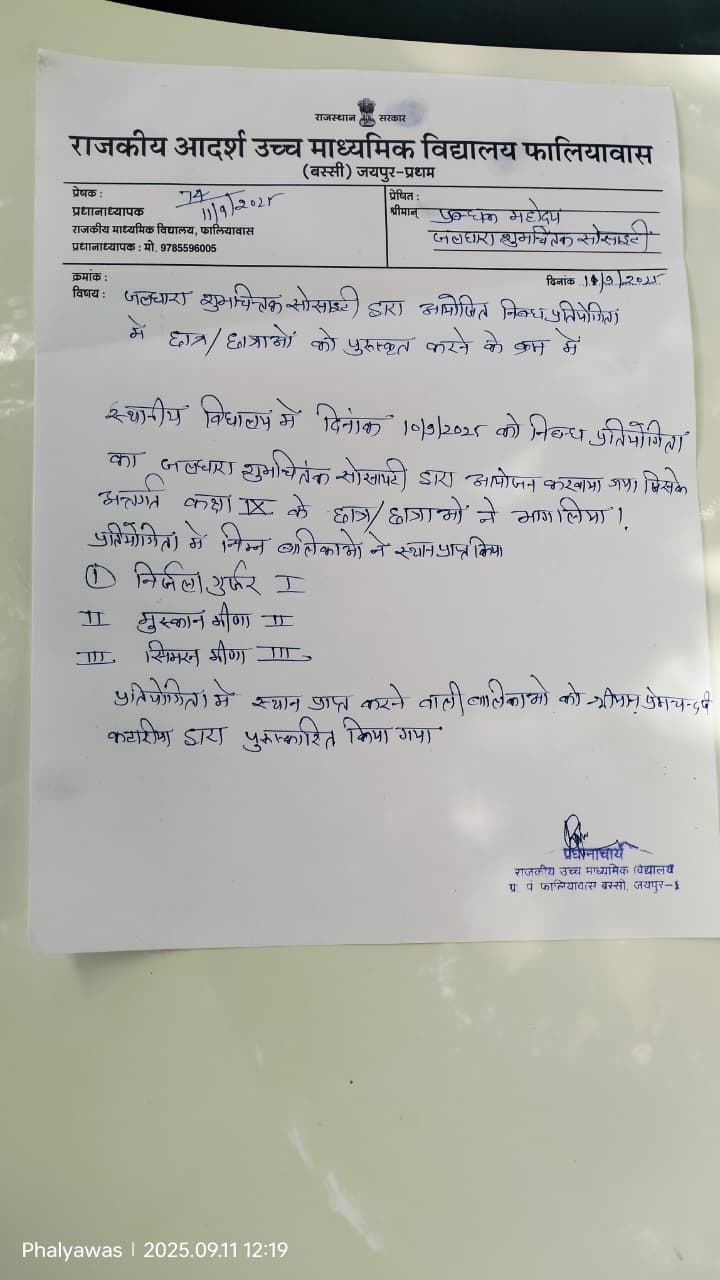 राजस्थान सरकार
राजकीय आदर्श उच्च माध्यमिक विद्यालय फालियावास
(बस्सी) जयपुर-प्रथम
प्रेषक :
74
11/9/2025
प्रधानाध्यापक
राजकीय माध्यमिक विद्यालय, फालियावास
प्रधानाध्यापक : मो. 9785596005
प्रेषित :
श्रीमान् प्रबन्धक महोदय
जलधारा शुभचिंतक सोसाइटी
क्रमांक :
दिनांक 11/9/2025
विषय : जलधारा शुभचिंतक सोसाइटी द्वारा आयोजित निबन्ध प्रतियोगिता
में छात्र/छात्राओं को पुरूस्कृत करने के क्रम में
स्थानीय विधालय में दिनांक 10/9/2025 को निबन्ध प्रतियोगिता
का जलधारा शुभचिंतक सोसायटी द्वारा आयोजन करवाया गया जिसके
अन्तर्गत कक्षा IX के छात्र/छात्राओं ने भाग लिया।
प्रतियोगिता में निम्न बालिकाओं ने स्थान प्राप्त किया
① निर्जला गुर्जर I
II मुस्कान मीणा II
III सिमरन मीणा III
प्रतियोगिता में स्थान प्राप्त करने वाली बालिकाओं को श्रीमान्
कटारीया द्वारा पुरूस्कारित किया गया
प्रधानाचार्य
राजकीय उच्च माध्यमिक विद्यालय
फालियावास बस्सी, जयपुर-I
Phalyawas | 2025.09.11 12:19